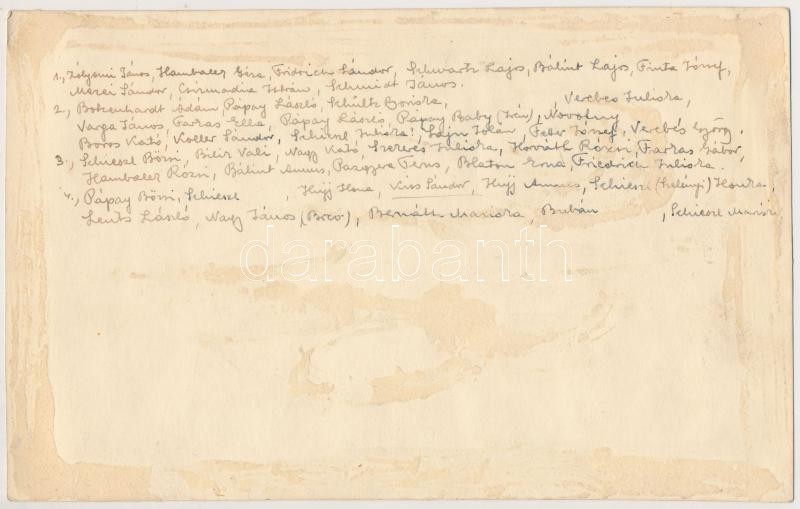 1., Zólyomi János, Hambalek Géza, Fridrich Sándor, Schwartz Lajos, Bálint Lajos, Finta József,
Mezei Sándor, Csizmadia István, Schmidt János.
2., Botzenhardt Ádám, Pápay László, Schultz Boriska, Verebes Juliska,
Varga János, Farkas Ella, Pápay László, Pápay Baby (Irén), Novotny
Boros Kató, Koller Sándor, Schieszl Juliska, Jolán, Feter József, Verebés György.
3., Schieszl Bözsi, Bilir Vali, Nagy Kató, Szekeres Juliska, Horváth Rózsi, Farkas Gábor,
Hambalek Rózsi, Bálint Annus, Ferus, Blaton Erna, Friedrich Juliska.
4., Pápay Bözsi, Schieszl , Hujj Ilona, Kiss Sándor, Hujj Annus, Schieszl (Selényi) Honka,
Lents László, Nagy János (Bocó), Bernáth Mariska, Bubán , Schieszl Mariska
darabanth